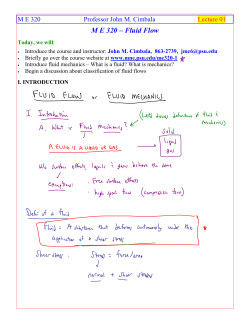 M E 320 Professor John M. Cimbala Lecture 01
M E 320 – Fluid Flow
Today, we will:
• Introduce the course and instructor: John M. Cimbala, 863-2739, jmc6@psu.edu
• Briefly go over the course website at www.mne.psu.edu/me320-1
• Introduce fluid mechanics – What is a fluid? What is mechanics?
• Begin a discussion about classification of fluid flows
I. INTRODUCTION
FLUID FLOW or FLUID MECHANICS
I. Introduction
A. What is Fluid Mechanics?
(Let's discuss definitions of fluid & mechanics)
A FLUID IS A LIQUID OR GAS
solid
liquid
gas
We surface effects, liquids & gases behave the same
exceptions:
· Free surface effects
· high speed flow (compressible flow)
Def'n of a fluid
Fluid = A substance that deforms continuously under the
application of a shear stress
Shear stress. Stress = force/area
normal + shear stress